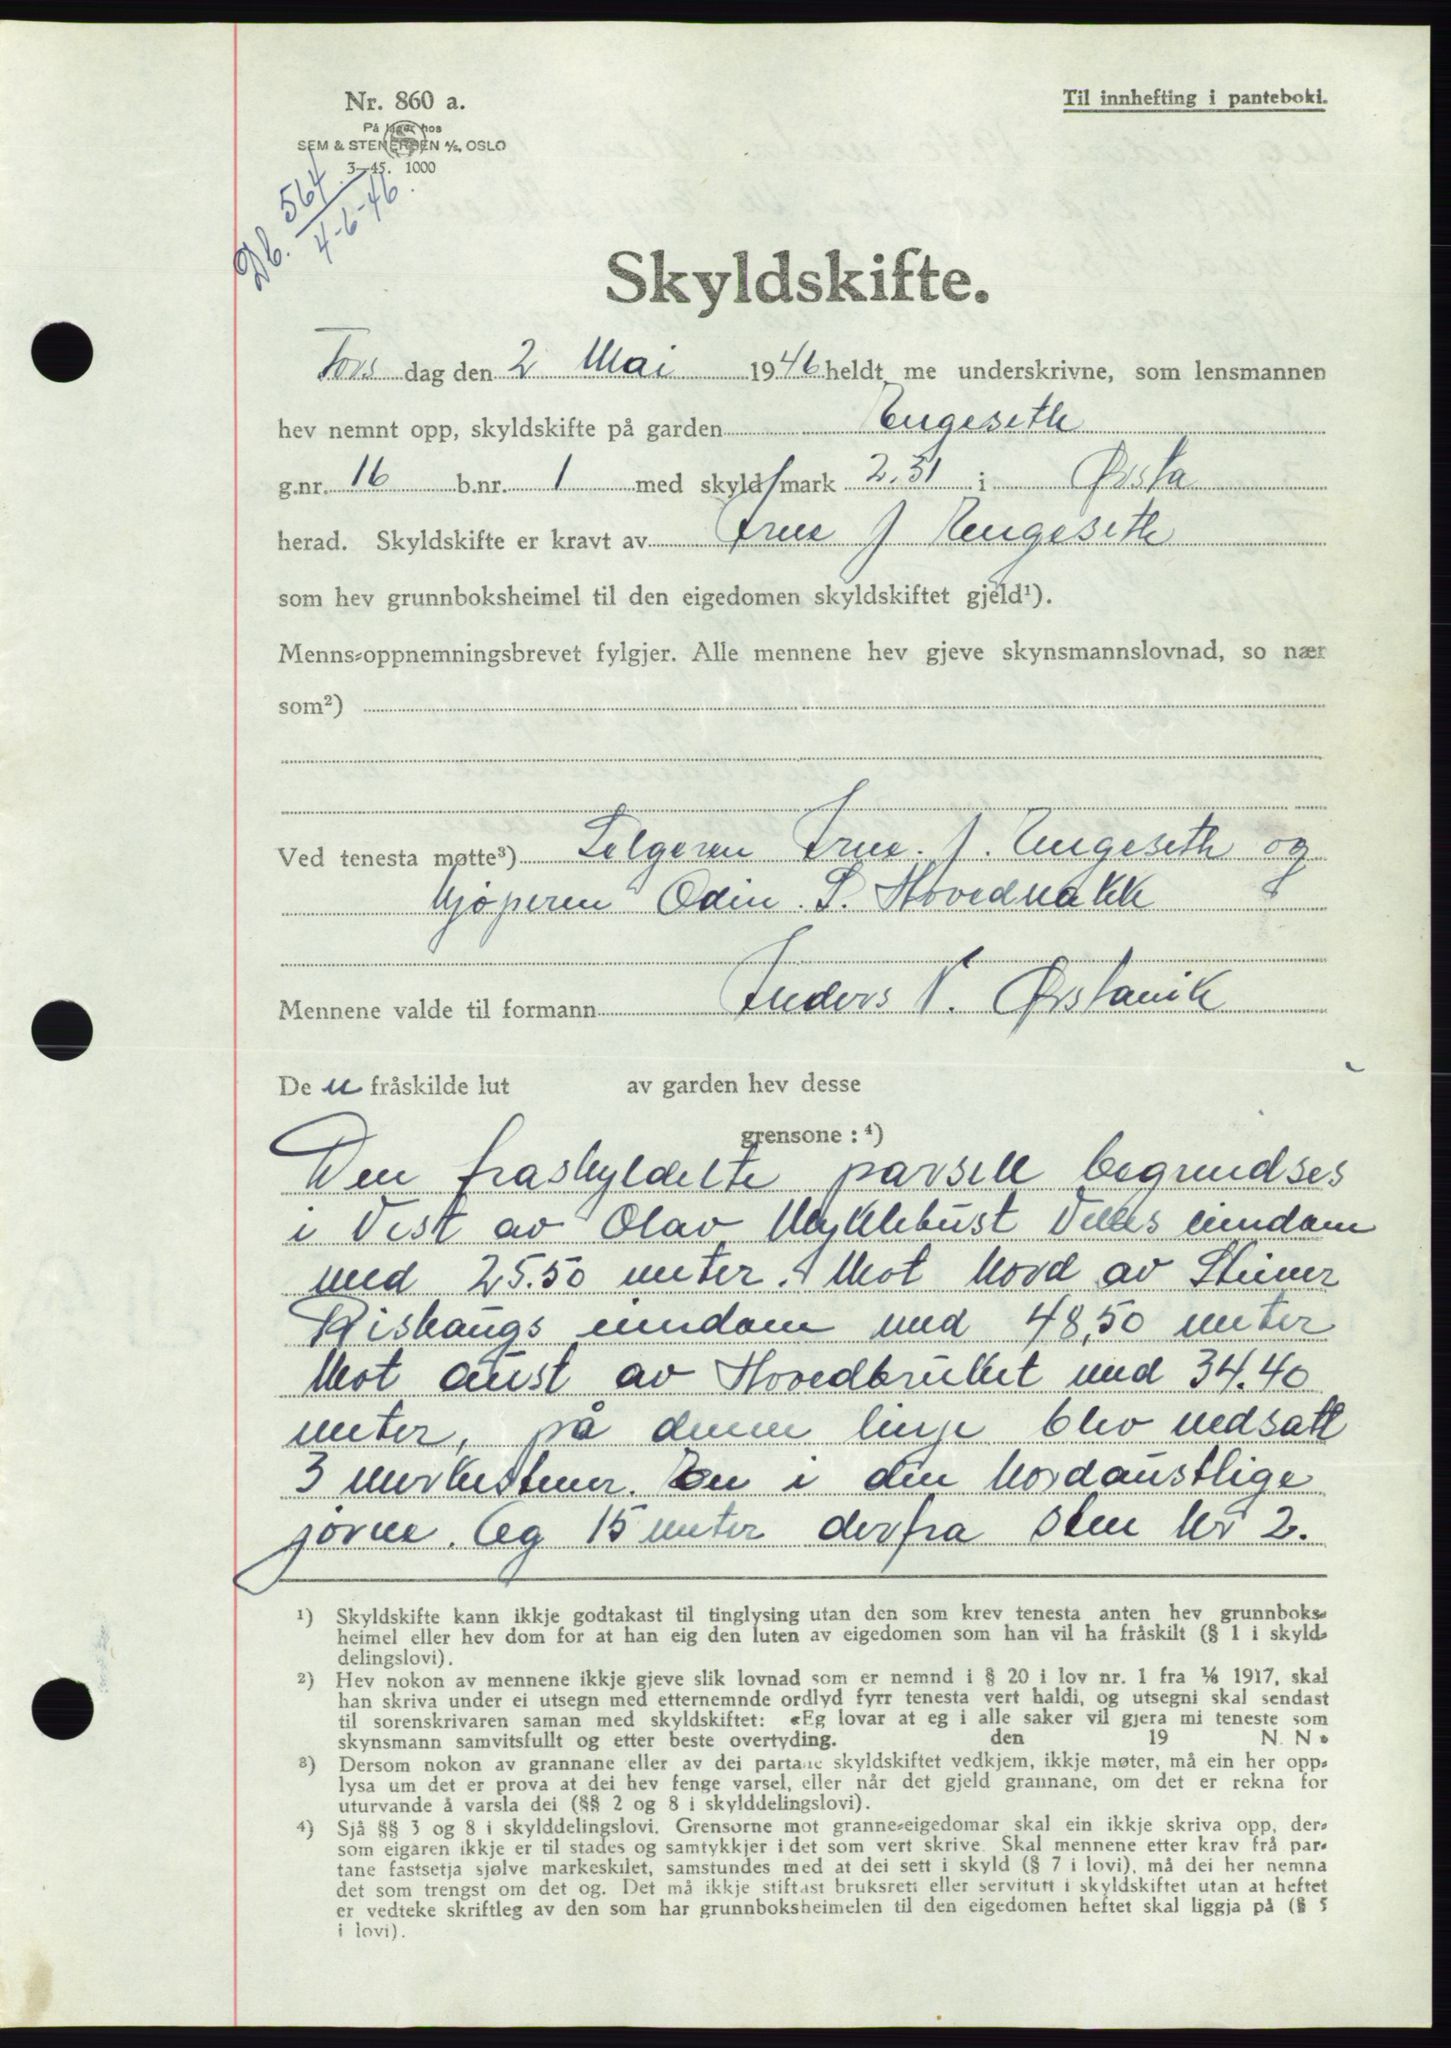 Nr. 860 a.
Til innhefting i panteboki.
På lager hos
SEM & STENERSEN A/S, OSLO
3-45. 1000
Db. 564
4-6-46.
Skyldskifte.
Tors dag den 2 Mai 1946 heldt me underskrivne, som lensmannen
hev nemnt opp, skyldskifte på garden Engeseth
g.nr. 16 b.nr. 1 med skyld mark 2.31 i Ørsta
herad. Skyldskifte er kravt av Arne J Engeseth
som hev grunnboksheimel til den eigedomen skyldskiftet gjeld¹).
Menns-oppnemningsbrevet fylgjer. Alle mennene hev gjeve skynsmannslovnad, so nær
som²)
Ved tenesta møtte³) Selgeren Arne. J. Engeseth og
kjøperen Odin. S. Hovednakk
Mennene valde til formann Anders N. Ørstavik
De n fråskilde lut av garden hev desse
grensone : ⁴)
Den fraskyldelte parsell begrendses
i Vest av Olav Myklebust Velles eiendom
med 25.50 meter. Mot Nord av Steiner
Riskaugs eiendom med 48,50 meter
Mot aust av Hovedbruket med 34.40
meter, på denne linje blev nedsatt
3 merkestener. En i den Nordaustlige
jørne. Og 15 meter derfra sten Nr 2.
¹) Skyldskifte kann ikkje godtakast til tinglysing utan den som krev tenesta anten hev grunnboks-
heimel eller hev dom for at han eig den luten av eigedomen som han vil ha fråskilt (§ 1 i skyld-
delingslovi).
²) Hev nokon av mennene ikkje gjeve slik lovnad som er nemnd i § 20 i lov nr. 1 fra ⅛ 1917, skal
han skriva under ei utsegn med etternemnde ordlyd fyrr tenesta vert haldi, og utsegni skal sendast
til sorenskrivaren saman med skyldskiftet: «Eg lovar at eg i alle saker vil gjera mi teneste som
skynsmann samvitsfullt og etter beste overtyding. den 19 N. N.
³) Dersom nokon av grannane eller av dei partane skyldskiftet vedkjem, ikkje møter, må ein her opp-
lysa um det er prova at dei hev fenge varsel, eller når det gjeld grannane, om det er rekna for
uturvande å varsla dei (§§ 2 og 8 i skylddelingslovi).
⁴) Sjå §§ 3 og 8 i skylddelingslovi. Grensorne mot granne-eigedomar skal ein ikkje skriva opp, der-
som eigaren ikkje er til stades og samtykkjer i det som vert skrive. Skal mennene etter krav frå par-
tane fastsetja sjølve markeskilet, samstundes med at dei sett i skyld (§ 7 i lovi), må dei her nemna
det som trengst om det og. Det må ikkje stiftast bruksrett eller servitutt i skyldskiftet utan at heftet
er vedteke skriftleg av den som har grunnboksheimelen til den eigedomen heftet skal liggja på (§ 5
i lovi).